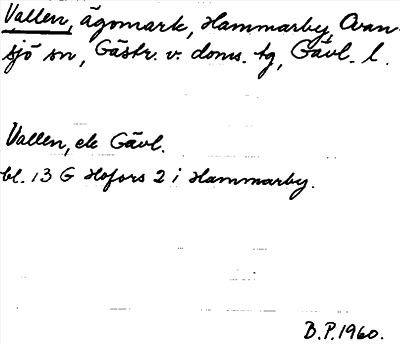 Vallen, ägomark, Hammarby, Ovan-
sjö sn, Gästr. v. doms. tg, Gävl. l.
Vallen, ek Gävl.
bl. 13 G Hofors 2 i Hammarby.
B.P. 1960.